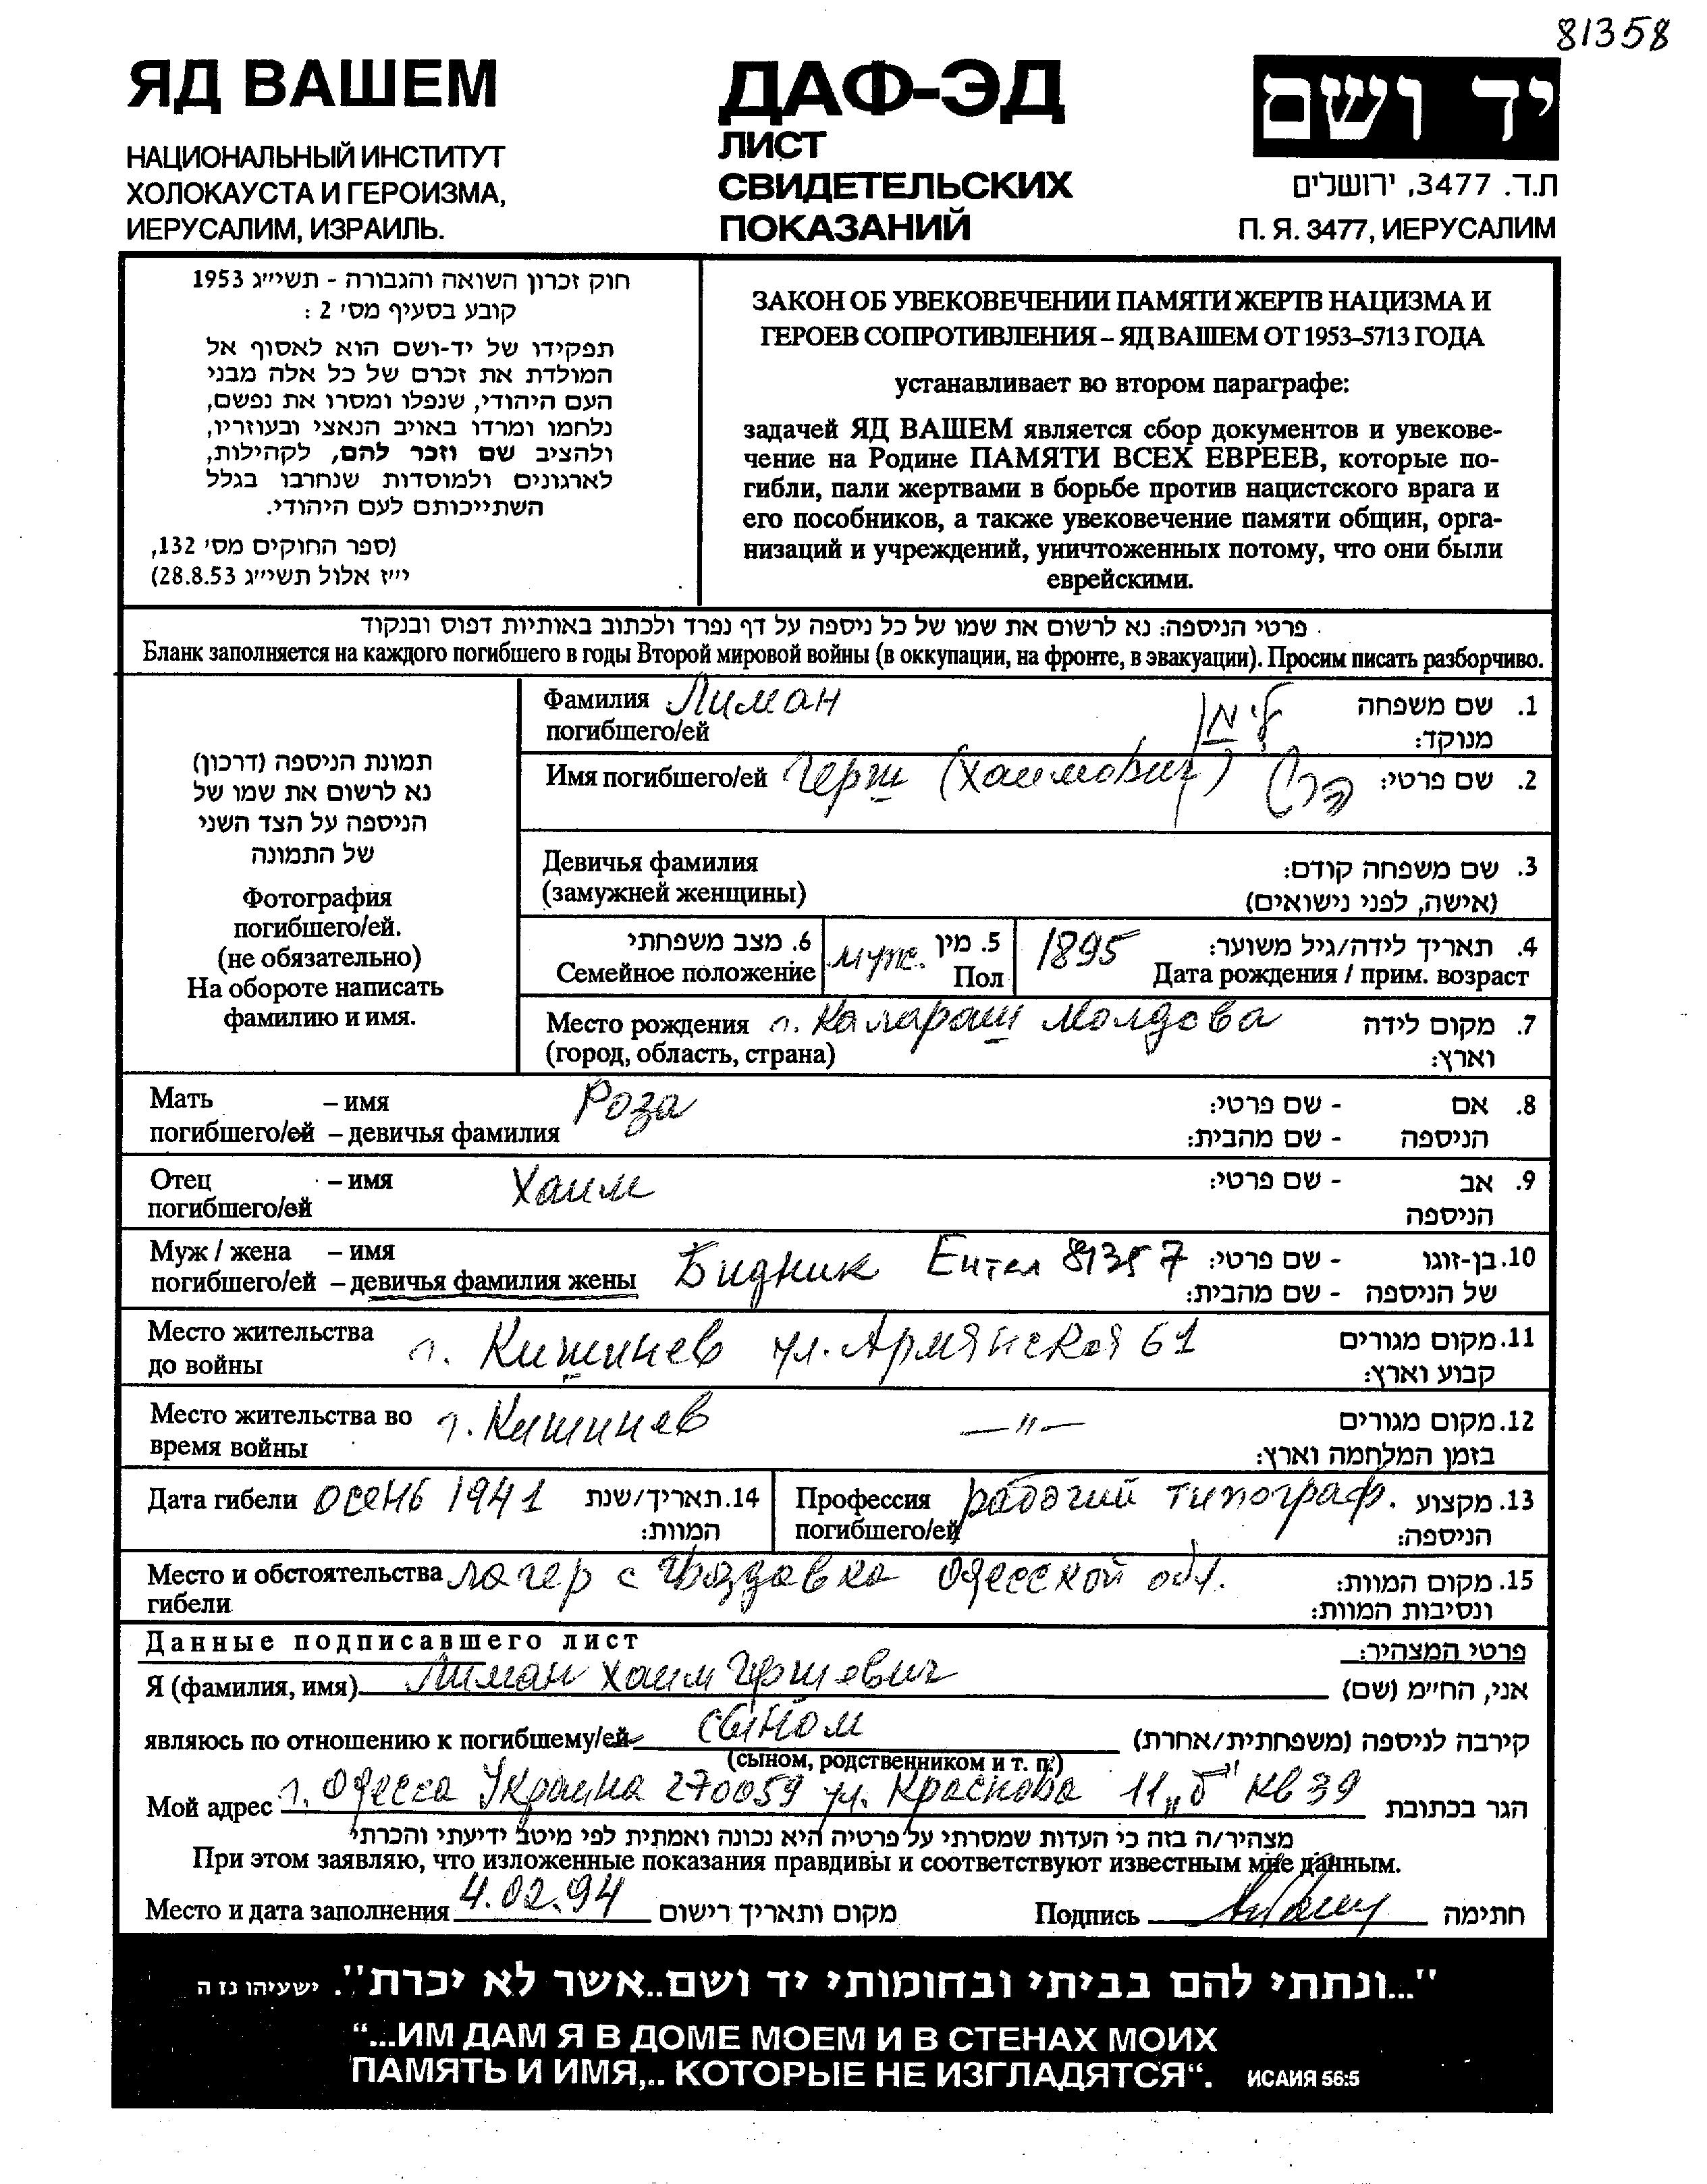 81358
ЯД ВАШЕМ
НАЦИОНАЛЬНЫЙ ИНСТИТУТ
ХОЛОКАУСТА И ГЕРОИЗМА,
ИЕРУСАЛИМ, ИЗРАИЛЬ.
ДАФ-ЭД
ЛИСТ
СВИДЕТЕЛЬСКИХ
ПОКАЗАНИЙ
יד ושם
ת.ד. 3477, ירושלים
П. Я. 3477, ИЕРУСАЛИМ
חוק זכרון השואה והגבורה - תשי״ג 1953
קובע בסעיף מס׳ 2 :
תפקידו של יד-ושם הוא לאסוף אל
המולדת את זכרם של כל אלה מבני
העם היהודי, שנפלו ומסרו את נפשם,
נלחמו ומרדו באויב הנאצי ובעוזריו,
ולהציב שם וזכר להם, לקהילות,
לארגונים ולמוסדות שנחרבו בגלל
השתייכותם לעם היהודי.
(ספר החוקים מס׳ 132,
י״ז אלול תשי״ג 28.8.53)
ЗАКОН ОБ УВЕКОВЕЧЕНИИ ПАМЯТИ ЖЕРТВ НАЦИЗМА И
ГЕРОЕВ СОПРОТИВЛЕНИЯ – ЯД ВАШЕМ ОТ 1953–5713 ГОДА
устанавливает во втором параграфе:
задачей ЯД ВАШЕМ является сбор документов и увекове-
чение на Родине ПАМЯТИ ВСЕХ ЕВРЕЕВ, которые по-
гибли, пали жертвами в борьбе против нацистского врага и
его пособников, а также увековечение памяти общин, орга-
низаций и учреждений, уничтоженных потому, что они были
еврейскими.
פרטי הניספה: נא לרשום את שמו של כל ניספה על דף נפרד ולכתוב באותיות דפוס ובנקוד
Бланк заполняется на каждого погибшего в годы Второй мировой войны (в оккупации, на фронте, в эвакуации). Просим писать разборчиво.
תמונת הניספה (דרכון)
נא לרשום את שמו של
הניספה על הצד השני
של התמונה
Фотография
погибшего/ей.
(не обязательно)
На обороте написать
фамилию и имя.
Фамилия Лиман לימן 1. שם משפחה
погибшего/ей מנוקד:
Имя погибшего/ей Герш (Хаимович) הרש 2. שם פרטי:
Девичья фамилия 3. שם משפחה קודם:
(замужней женщины) (אישה, לפני נישואים)
6. מצב משפחתי муж. 5. מין 1895 4. תאריך לידה/גיל משוער:
Семейное положение Пол Дата рождения / прим. возраст
Место рождения г. Калараш Молдова 7. מקום לידה
(город, область, страна) וארץ:
Мать – имя Роза 8. אם - שם פרטי:
погибшего/ей – девичья фамилия הניספה - שם מהבית:
Отец – имя Хаим 9. אב - שם פרטי:
погибшего/ей הניספה
Муж / жена – имя 10. בן-זוגו - שם פרטי:
погибшего/ей – девичья фамилия жены Бидник Ентел 81357 של הניספה - שם מהבית:
Место жительства г. Кишинев ул. Армянская 61 11. מקום מגורים
до войны קבוע וארץ:
Место жительства во г. Кишинев —"— 12. מקום מגורים
время войны בזמן המלחמה וארץ:
Дата гибели осень 1941 14. תאריך/שנת
המוות:
Профессия рабочий типограф. 13. מקצוע
погибшего/ей הניספה:
Место и обстоятельства лагер с Гвоздавка Одесской обл. 15. מקום המוות:
гибели ונסיבות המוות:
Данные подписавшего лист פרטי המצהיר:
Я (фамилия, имя) Лиман Хаим Гершевич אני, החי״מ (שם)
являюсь по отношению к погибшему/ей сыном קירבה לניספה (משפחתית/אחרת)
(сыном, родственником и т. п.)
Мой адрес г. Одесса Украина 270059 ул. Краснова 11 „б" кв 39 הגר בכתובת
מצהיר/ה בזה כי העדות שמסרתי על פרטיה היא נכונה ואמתית לפי מיטב ידיעתי והכרתי
При этом заявляю, что изложенные показания правдивы и соответствуют известным мне данным.
Место и дата заполнения 4.02.94 מקום ותאריך רישום Подпись חתימה
"...ונתתי להם בביתי ובחומותי יד ושם..אשר לא יכרת". ישעיהו נז ה
“...ИМ ДАМ Я В ДОМЕ МОЕМ И В СТЕНАХ МОИХ
ПАМЯТЬ И ИМЯ,.. КОТОРЫЕ НЕ ИЗГЛАДЯТСЯ“. ИСАИЯ 56:5